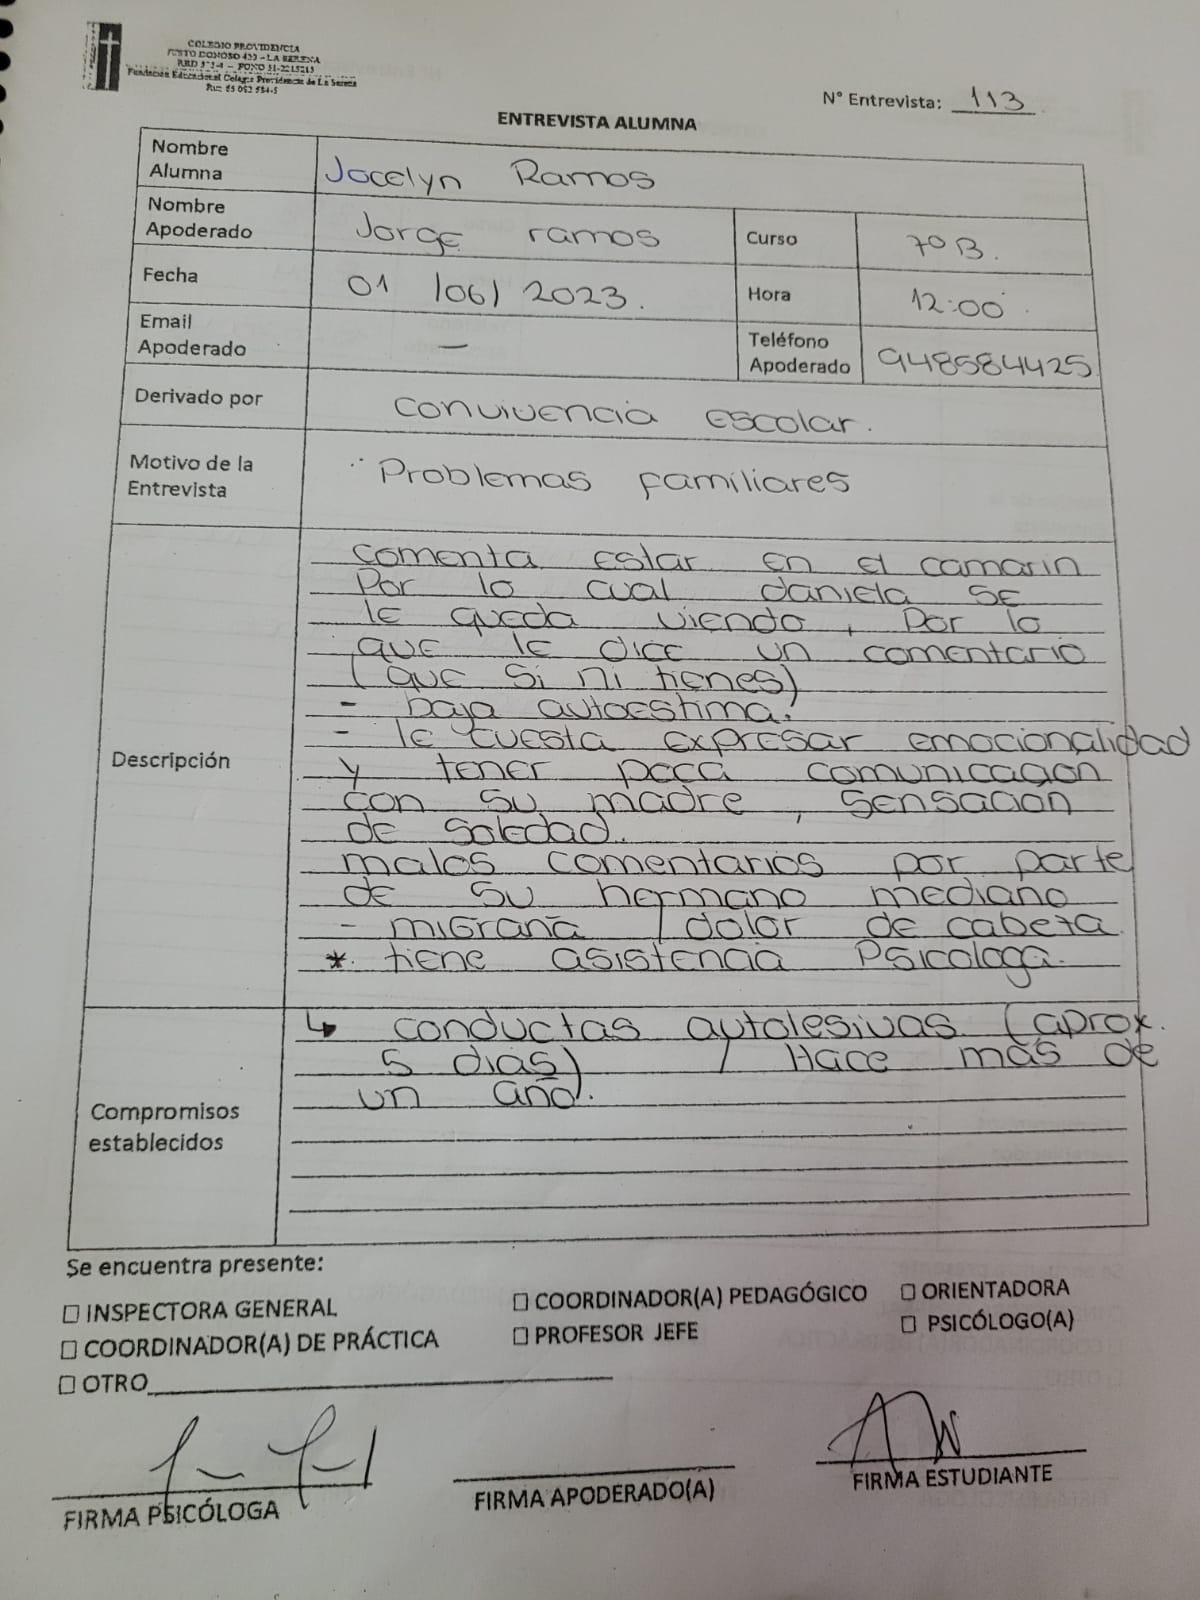 COLEGIO PROVIDENCIA
JUSTO DONOSO 433 - LA SERENA
RBD - FONO 51-2215213
Fundación Educacional Colegio Providencia de La Serena
Nº Entrevista: 113
ENTREVISTA ALUMNA
Nombre Alumna Jocelyn Ramos
Nombre Apoderado Jorge ramos Curso 7º B.
Fecha 01 /06/ 2023. Hora 12:00
Email Apoderado - Teléfono Apoderado 948584425
Derivado por convivencia escolar.
Motivo de la Entrevista Problemas familiares
Descripción
comenta estar en el camarin
Por lo cual daniela se
le queda viendo, Por lo
que le dice un comentario
(que si ni tienes)
- baja autoestima.
- le cuesta expresar emocionalidad
y tener poca comunicación
con su madre, sensación
de soledad.
malos comentarios por parte
de su hermano mediano
- migraña / dolor de cabeza.
* tiene asistencia Psicologa.
Compromisos establecidos
↳ conductas autolesivas (aprox.
5 dias) / Hace más de
un año.
Se encuentra presente:
☐ INSPECTORA GENERAL ☐ COORDINADOR(A) PEDAGÓGICO ☐ ORIENTADORA
☐ COORDINADOR(A) DE PRÁCTICA ☐ PROFESOR JEFE ☐ PSICÓLOGO(A)
☐ OTRO
FIRMA PSICÓLOGA FIRMA APODERADO(A) FIRMA ESTUDIANTE